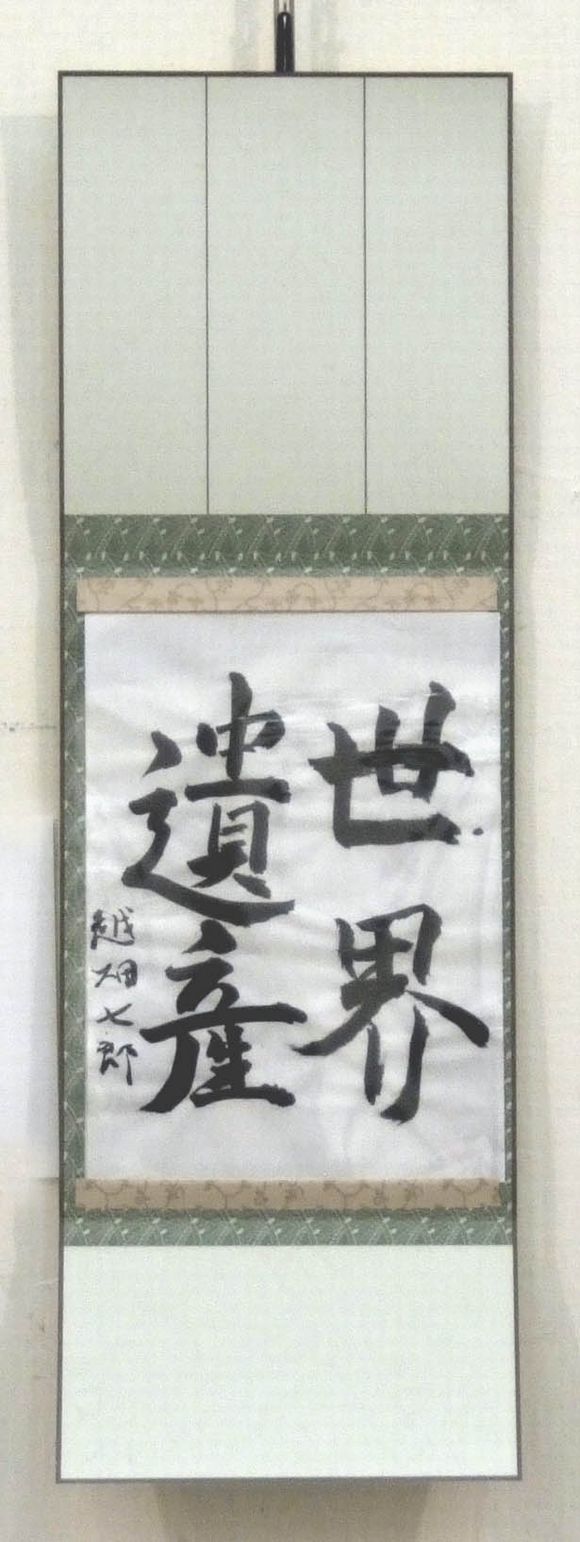 世界
遺産
越畑七郎